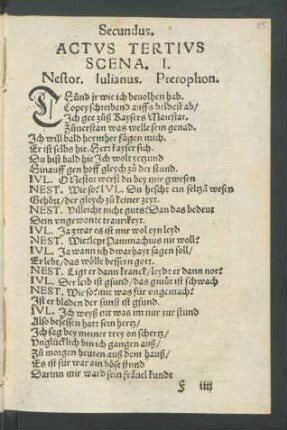 Secundus.
ACTVS TERTIVS
SCENA. I.
Nestor. Iulianus. Prerophon.
THünd jr wie ich beuolhen hab.
Copey schreibend auffs beldest ab/
Ich gee züß Kaysers Maiestat.
Züuerstan was welle sein genad.
Ich will bald herwiher fügen mich.
Er ist selbs hie. Herr kayser sich.
Du bist bald hie Ich wolt yetzund
Hinauff gen hoff gleych zü der stund.
IVL. O Nestor werst du bey mir gwesen
NEST. Wie so? IVL. Du hesche ein seltzā wesen
Gehözt/der gleych zü keiner zeyt.
NEST. Villeicht nicht guts? Dan das bedeut
Dein vngewonte traurikeyt.
IVL. Ja zwar es ist mir wol eyn leyd
NEST. Wie: lept Pammachius nit woll?
IVL. Ja wann ich dwarhayt sagen soll/
Er lebt/ das wölle bessern gott.
NEST. Ligt er dann kranck/ leydt er dann not?
IVL. Der leib ist gsund/ das gmüt ist schwach
NEST. Wie so? mit was für vngemach?
Ist er bladen der sunst ist gsund.
IVL. Ich weyß nit was im nur zur stund
Also besessen hatt sein hertz/
Ich sag bey meiner trey on schertz/
Vnglücklich bin ich gangen auß/
Zü morgen heuten auß dem hauß/
Es ist für war ain böse stund
Darinn mir ward sein fräuel kundt
iiij